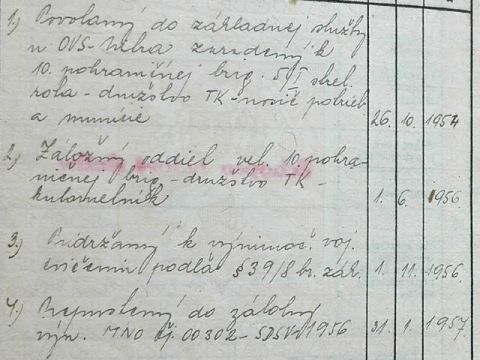 1.) Povolaný do základnej služby
u OVS-Nitra zaradený k
10. pohraničnej brig. 5/I strel.
rota - družstvo TK - nosič potrieb
a munície 26. 10. 1954
2.) Záložný oddiel vel. 10. pohra-
ničnej brig - družstvo TK -
kulometník 1. 6. 1956.
3.) Pridržaný k výnimoč. voj.
cvičeniu podľa § 39/8 br. zák. 1. 11. 1956.
4.) Prepustený do zálohy
výn. MNO čj. 00302 - 1956 31. 1. 1957.